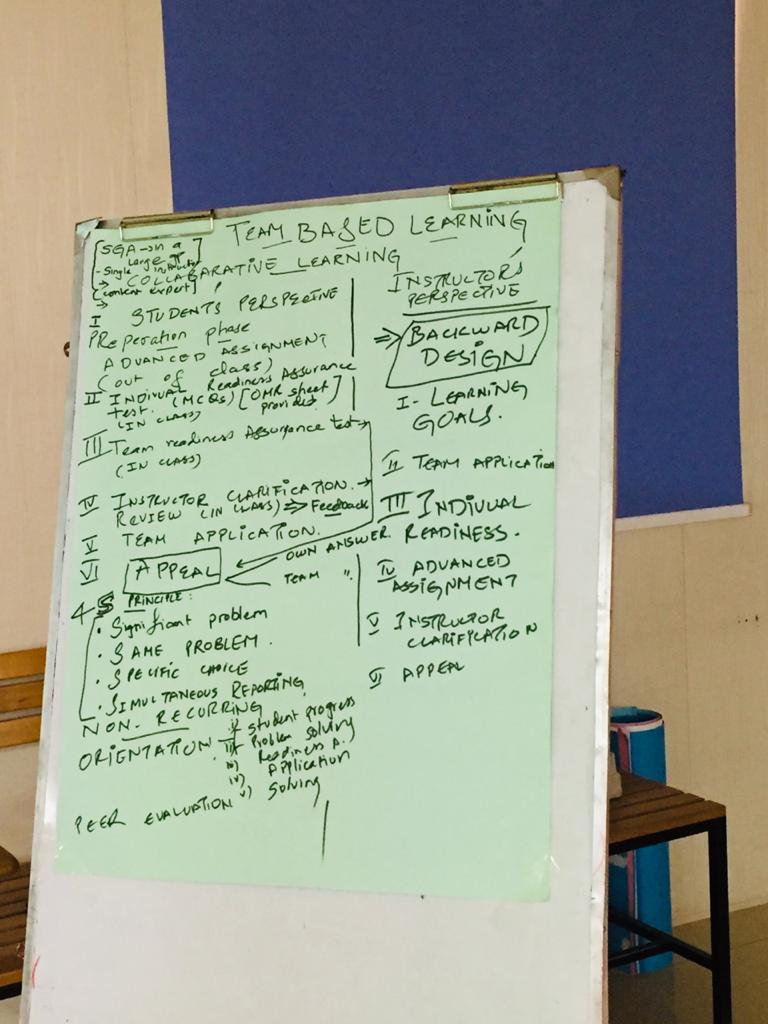 TEAM BASED LEARNING
[SGA → in a
Large
- Single instructor
→ COLLABARATIVE LEARNING
(content expert)
I STUDENTS PERSPECTIVE
PREPERATION phase
ADVANCED ASSIGNMENT
(out of class)
II INDIVUAL Readiness Assurance
test. (MCQs) [OMR sheet provided]
(IN CLASS)
III Team readiness Assurance test
(IN CLASS)
IV INSTRUCTOR CLARIFICATION. →
REVIEW (IN CLASS) ⇒ Feedback
V TEAM APPLICATION.
VI APPEAL
OWN ANSWER
TEAM "
4-S PRINCIPLE:
• Significant problem
• SAME PROBLEM.
• SPECIFIC CHOICE
• SIMULTANEOUS REPORTING
NON-RECURRING
ORIENTATION i) Student progress
ii) Problem solving
iii) Readiness A.
iv) Application
v) Solving
PEER EVALUATION
INSTRUCTOR'S
PERSPECTIVE
⇒ BACKWARD
DESIGN
I - LEARNING
GOALS.
II TEAM APPLICATION
III INDIVUAL
READINESS.
IV ADVANCED
ASSIGNMENT
V INSTRUCTOR
CLARIFICATION
VI APPEAL